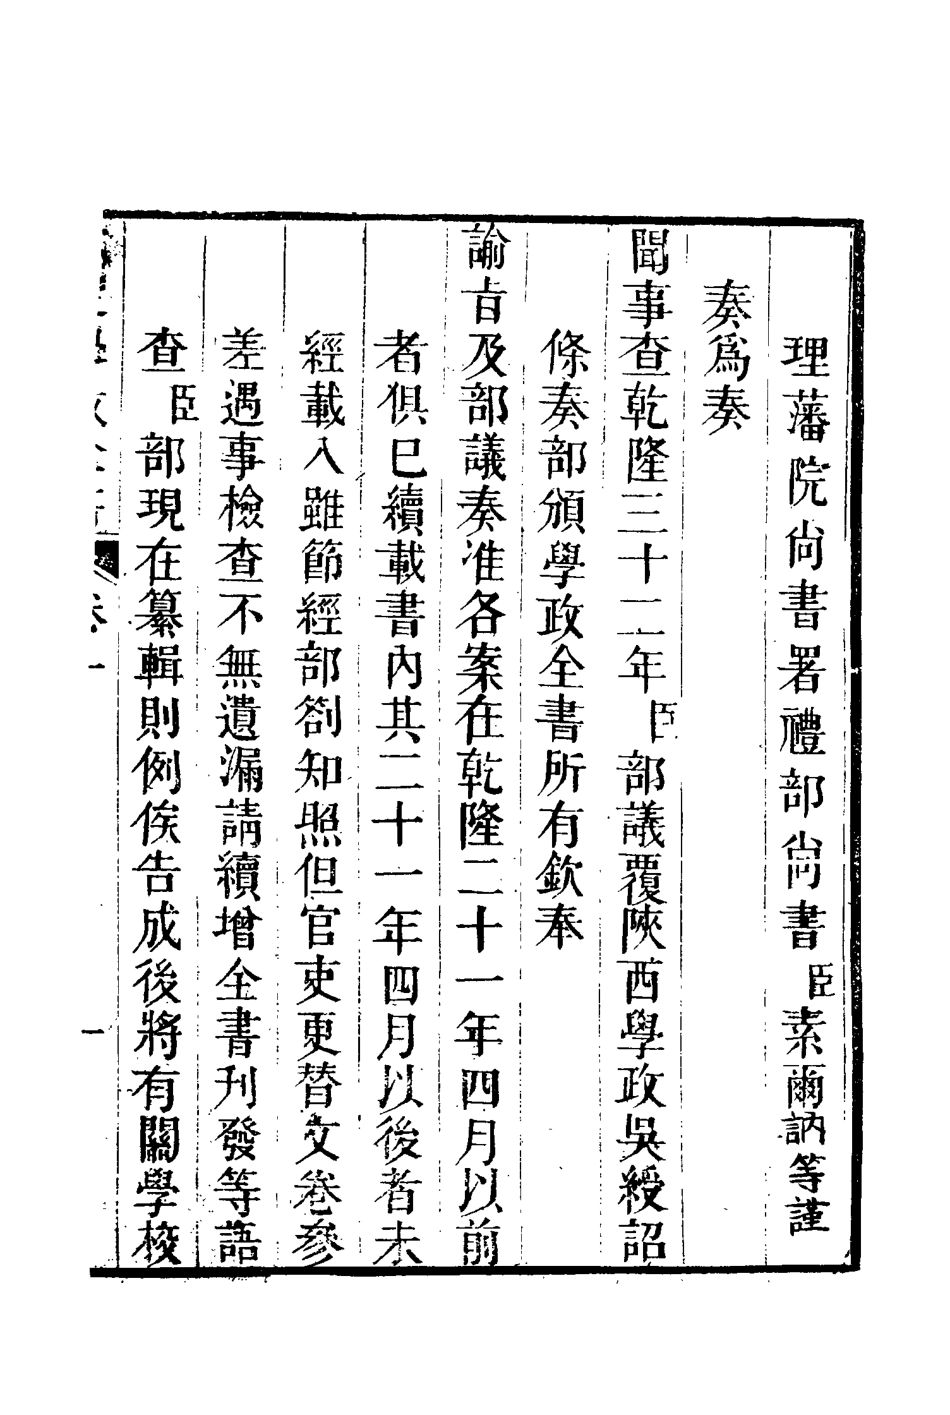 理藩院尚書署禮部尚書臣素爾訥等謹
奏爲奏
聞事查乾隆三十二年臣部議覆陝西學政吳綬詔
條奏部頒學政全書所有欽奉
諭旨及部議奏准各案在乾隆二十一年四月以前
者俱巳續載書內其二十一年四月以後者未
經載入雖節經部劄知照但官吏更替文卷參
差遇事檢查不無遺漏請續增全書刊發等語
查臣部現在纂輯則例俟告成後將有關學校
卷一
一